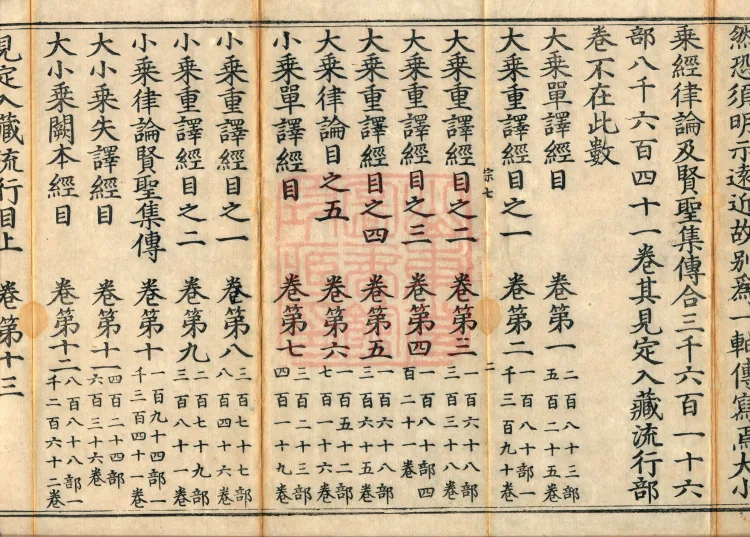 然恐須明示遠近故別爲一軸傳寫焉大小
乘經律論及賢聖集傳合三千六百一十六
部八千六百四十一卷其見定入藏流行部
卷不在此數
大乘單譯經目 卷第一 二百八十三部五百二十五卷
大乘重譯經目之一 卷第二 一百八十部一千三百九十卷
宗七 二
大乘重譯經目之二 卷第三 一百六十八部三百三十八卷
大乘重譯經目之三 卷第四 一百八十部四百二十一卷
大乘重譯經目之四 卷第五 一百六十八部三百六十五卷
大乘律論目之五 卷第六 一百五十二部七百一十六卷
小乘單譯經目 卷第七 三百二十三部四百一十九卷
小乘重譯經目之一 卷第八 三百七十七部八百四十六卷
小乘重譯經目之二 卷第九 二百七十九部三百八十一卷
小乘律論賢聖集傳 卷第十 一百九十四部一千三百四十一卷
大小乘失譯經目 卷第十一 四百二十四部六百三十六卷
大小乘闕本經目 卷第十二 八百八十八部一千二百六十二卷
見定入藏流行目上 卷第十三